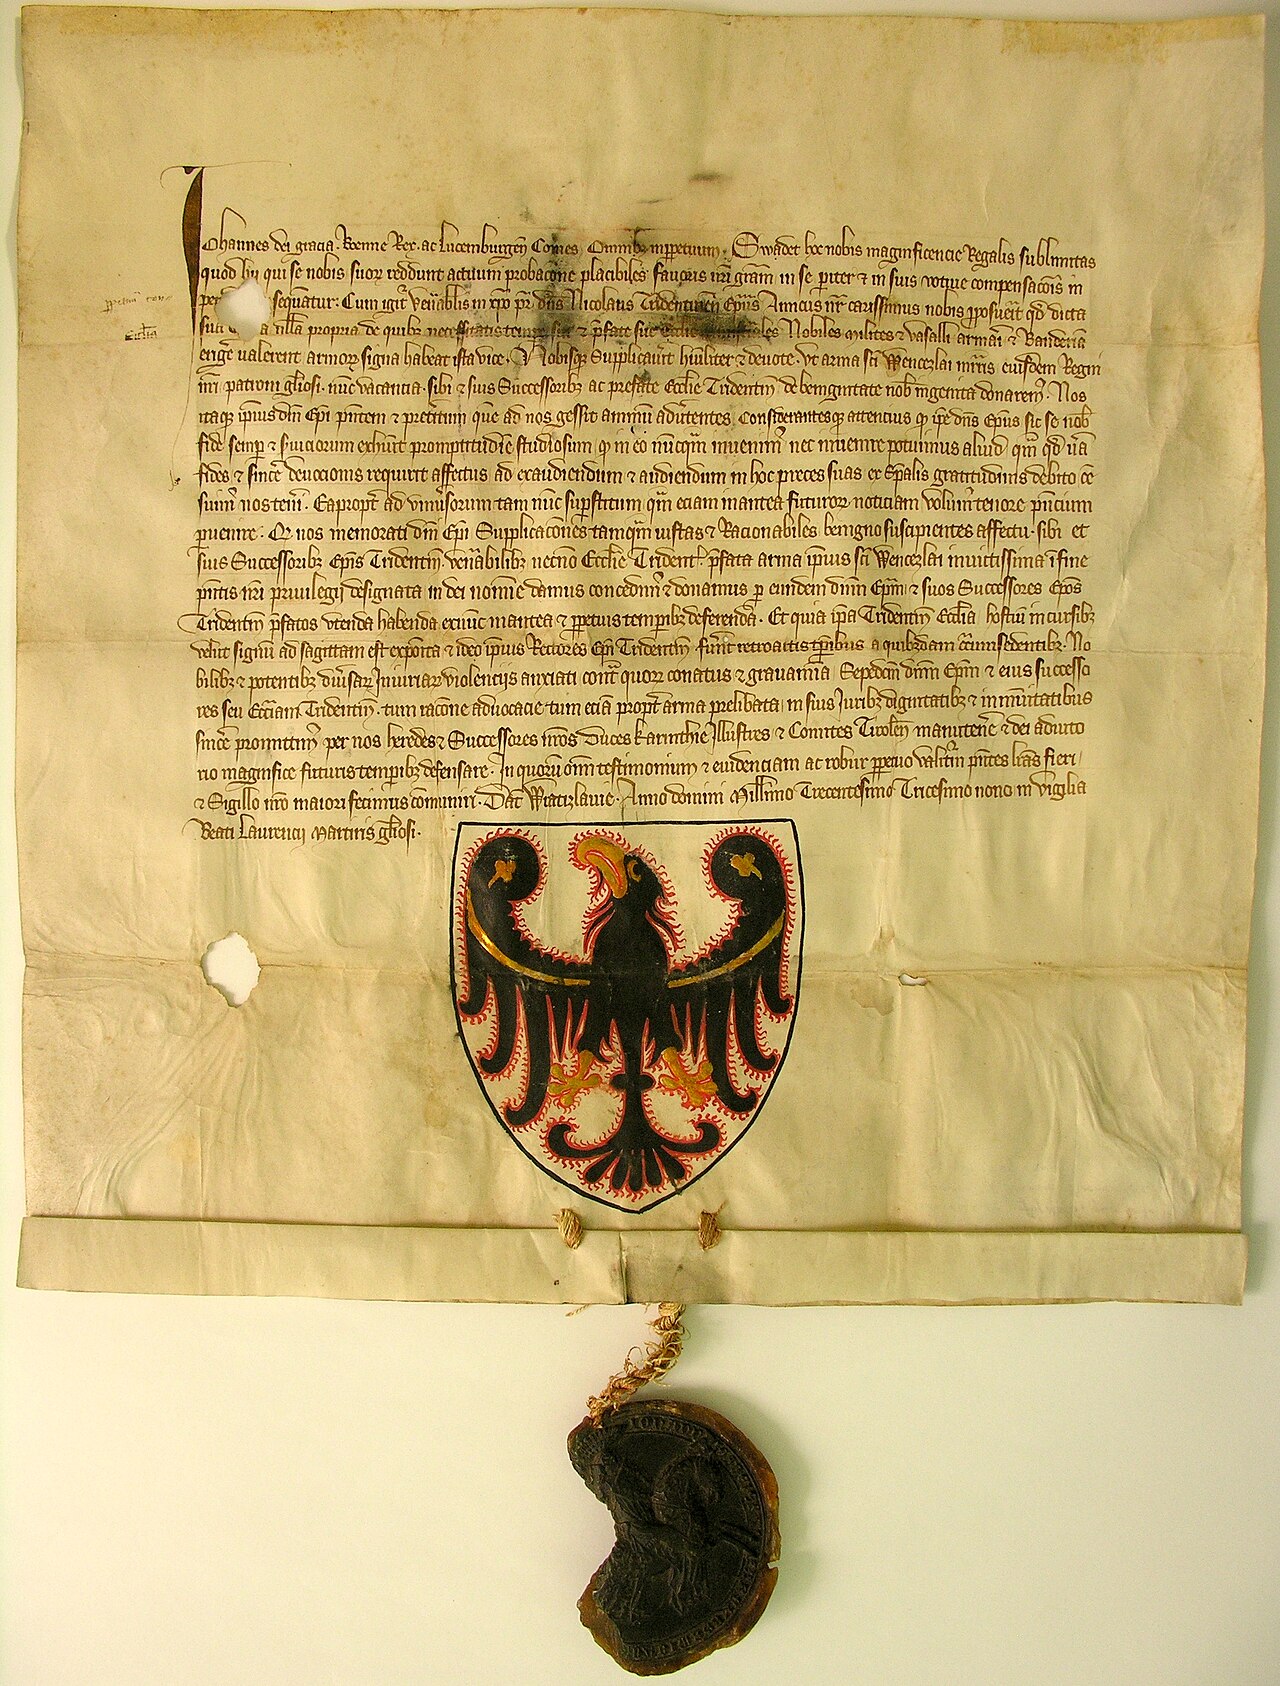 Johannes dei gracia Boemie Rex ac Lucemburgen̄ Comes Omnibꝫ inperpetuum. Swadet hoc nobis magnificencie Regalis sublimitas
quod hij qui se nobis suoꝝ reddunt actuum probacōne placibiles fauoris nr̄i gr̄am in se pariter ⁊ in suis votiue compensacōis in
sequatur. Cum igit̄ ven̄abilis in xp̄o pr̄ dn̄s Nicolaus Tridentinen̄ Ep̄us Amicus nr̄ carissimus nobis p̄posuerit qd̄ dicta
sua nulla propria de quibꝫ necessitatis tempore sue ⁊ p̄fate sue Ecclie Nobiles milites ⁊ vasalli armari ⁊ Banderia
erige᷑ ualerent armoꝝ signa habeat ista vice. Nobisqꝫ Supplicauit hūilit̄ ⁊ deuote. vt arma sc̄i Wenczlai mr̄is eiusdem Regni
nr̄i patroni gl̄iosi. nūc vacancia. sibi ⁊ suis Successoribꝫ ac prefate Eccl̄ie Tridentin̄ de benignitate nob̄ ingenita donarem᷒. Nos
itaqꝫ ip̄ius dn̄i Ep̄i p̄ntem ⁊ pretitum que ad nos gessit animū aduertentes Considerantesqꝫ attencius qꝫ ip̄e dn̄s Ep̄us sic se nob̄
fide semꝑ ⁊ seruiciorum exhiuit promptitudīe studiosum qꝫ in eo nūcq̄m inuenim᷒ nec inuenire potuimus aliud qm̄ qd̄ v̄a
fides ⁊ sincē deuocionis requirit affectus ad exaudiendum ⁊ audiendum in hoc preces suas ex sp̄alis gratitudinis debito cē
suim᷒ nos teni᷑. Eapropt̄ ad vniu᷑sorum tam nūc sup̄stitum qm̄ eciam inantea futuroꝝ noticiam volum᷒ tenore p̄ncium
ꝑuenire. Qꝫ nos memorati dn̄i Ep̄i Supplicacōnes tamq̄m iustas ⁊ Racionabiles benigno suscipientes affectu. sibi et
suis Successoribꝫ Ep̄is Tridentin̄. ven̄abilibꝫ necnō Eccl̄ie Trident̄. p̄fata arma ip̄ius sc̄i Wenczlai inuictissima ī fine
p̄ntis nr̄i priuilegij designata in dei nomine damus concedim᷒ ⁊ donamus ꝑ eundem dn̄m Ep̄m ⁊ suos Successores Ep̄os
Tridentin̄ p̄fatos vtenda habenda exnūc inantea ⁊ ꝑpetuis temporibꝫ deferenda. Et quia ip̄a Tridentin̄ Eccl̄ia hostiū incursibꝫ
velut signū ad sagittam est exposita ⁊ ideo ip̄ius Rectores Ep̄i Tridentin̄ fueRūt retroactis tp̄ibus a quibꝫdam circumsedentibꝫ. No
bilibꝫ ⁊ potentibꝫ diu᷑saꝝ Iniuriaꝝ violencijs anxiati contᷓ quoꝝ conatus ⁊ grauamīa Sepedcm̄ dn̄m Ep̄m ⁊ eius successo
res seu Eccl̄iam Tridentin̄. tum racōne aduocacie tum eciā propt̄ arma prelibata in suis Juribꝫ dignitatibꝫ ⁊ inmūitatibus
sincē promittim᷒ per nos heredes ⁊ Successores nr̄os Duces Karinthie Illustres ⁊ Comites Tirolen̄ manutenē ⁊ dei adiuto
rio magnifice futuris temporibꝫ defensare. In quorū om̄i testimonium ⁊ euidenciam ac robur ꝑpetuo valit̄m p̄ntes lr̄as fieri
⁊ Sigillo nr̄o maiori fecimus cōmuniri. Dat̄ Wratizlauie. Anno domini Millesimo Trecentesimo Tricesimo nono in vigilia
Beati Laurencij Martiris gl̄iosi.